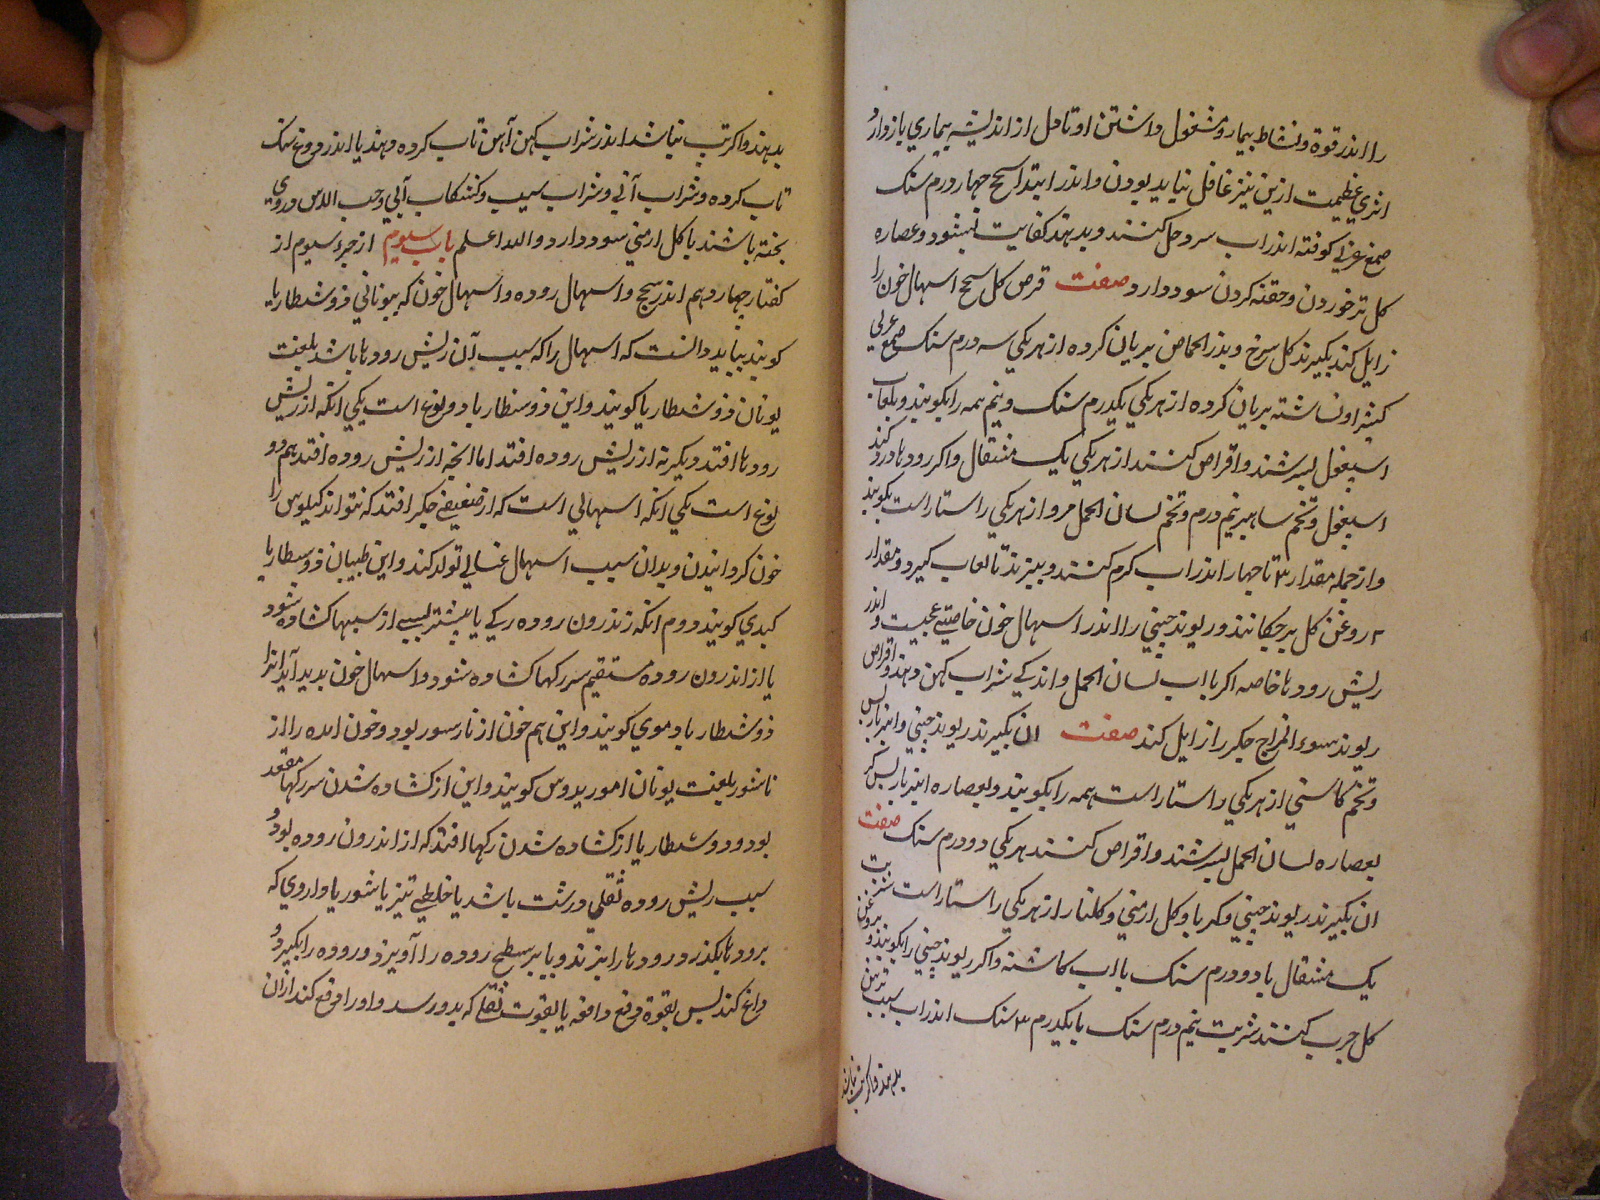 را اندر قوة و نشاط بیمار و مشغول داشتن او تا دل از اندیشه بیماری بازدارد
اثری عظیمست ازین نیز غافل نباید بودن و اندر ابتدا سحج چهار درم سنک
صمغ عربی کوفته اندر اب سرد حل کنند و بدهند کفایت بشود و عصاره
کل تر خوردن و حقنه کردن سود دارد صفت قرص کل سحج اسهال خون را
زایل کند بکیرند کل سرخ و بذر الحماض بریان کرده از هریکی سه درم سنک صمغ عربی
کثیرا و نشاشته بریان کرده از هریکی یکدرم سنک و نیم همه را بکوبند و بلعاب
اسبغول بسرشند و اقراص کنند از هریکی یک مثقال و اکر رودها درد کند
اسبغول و تخم نیم درم و تخم لسان الحمل مرو از هریکی راستاراست بکوبند
و از جمله مقدار ۳ تا چهار اندر اب کرم کنند و بپزند تا لعاب کیرد و مقدار
۲ روغن کل برچکانند و ریوند چینی را اندر اسهال خون خاصیتی عجیبست و اندر
ریش رودها خاصه اکر با اب لسان الحمل و اندکی شراب کهن دهند و اقراص
ریوند سوء المزاج جکر را زایل کند صفت ان بکیرند ریوند چینی و انبرباریس
و تخم کاسنی از هریکی راستاراست همه را بکوبند و بعصاره انبرباریس تر
بعصاره لسان الحمل بسرشند و اقراص کنند هریکی دو درم سنک صفت
ان بکیرند ریوند چینی و کهربا و کل ارمنی و کلنار از هریکی راستاراست شربت
یک مثقال یا دو درم سنک با اب کاشنه و اکر ریوند چینی را بکوبند و بروغن
کل چرب کنند شربت نیم درم سنک یا یکدرم سنک اندر اب سیب ترین
بدهند و اکر تب نباشد
بدهند و اکر تب نباشد اندر شراب کهن آهن تاب کرده دهند یا اندر دوغ سنک
تاب کرده و شراب آبی و شراب سیب و کشکاب آبی و حب الاس دروی
پخته باشند با کل ارمنی سود دارد والله اعلم باب سیوم از جزء سیوم از
کفتار چهاردهم اندر سحج و اسهال روده و اسهال خون که بیونانی ذوسنطاریا
کویند بباید دانست که اسهال را که سبب آن ریش رودها باشد بلغت
یونان ذوسنطاریا کویند و این ذوسنطاریا دو نوع است یکی انکه از ریش
رودها افتد و دیکر نه از ریش روده افتد اما انچه از ریش روده افتد هم دو
نوع است یکی انکه اسهالی است که از ضعیفی جکر افتد که نتواند کیلوس را
خون کردانیدن و بدان سبب اسهال غسالی تولد کند و این طبیبان ذوسنطاریا
کبدی کویند دوم انکه ز اندرون روده رکی یا بیشتر بسببی از سببها کشاده شود
یا از اندرون روده مستقیم سر رکها کشاده شود و اسهال خون بدید آید انرا
ذوسنطاریا دموی کویند و این هم خون از ناسور بود و خون امده را از
ناسور بلغت یونان امورید‌وس کویند و این از کشاده شدن سر رکها مقعد
بود و ذوسنطاریا از کشاده شدن رکها افتد که از اندرون روده بود و
سبب ریش روده ثقلی درشت باشد یا خلطی تیز یا شور یا داروی که
برودها بکذرد و رودها را برندد و یا بر سطح روده را آویزد و روده را بکیرد و
داغ کند پس بقوة دفع دافعه یا بقوت ثقلی که بدو رسد و او را دفع کند از ان